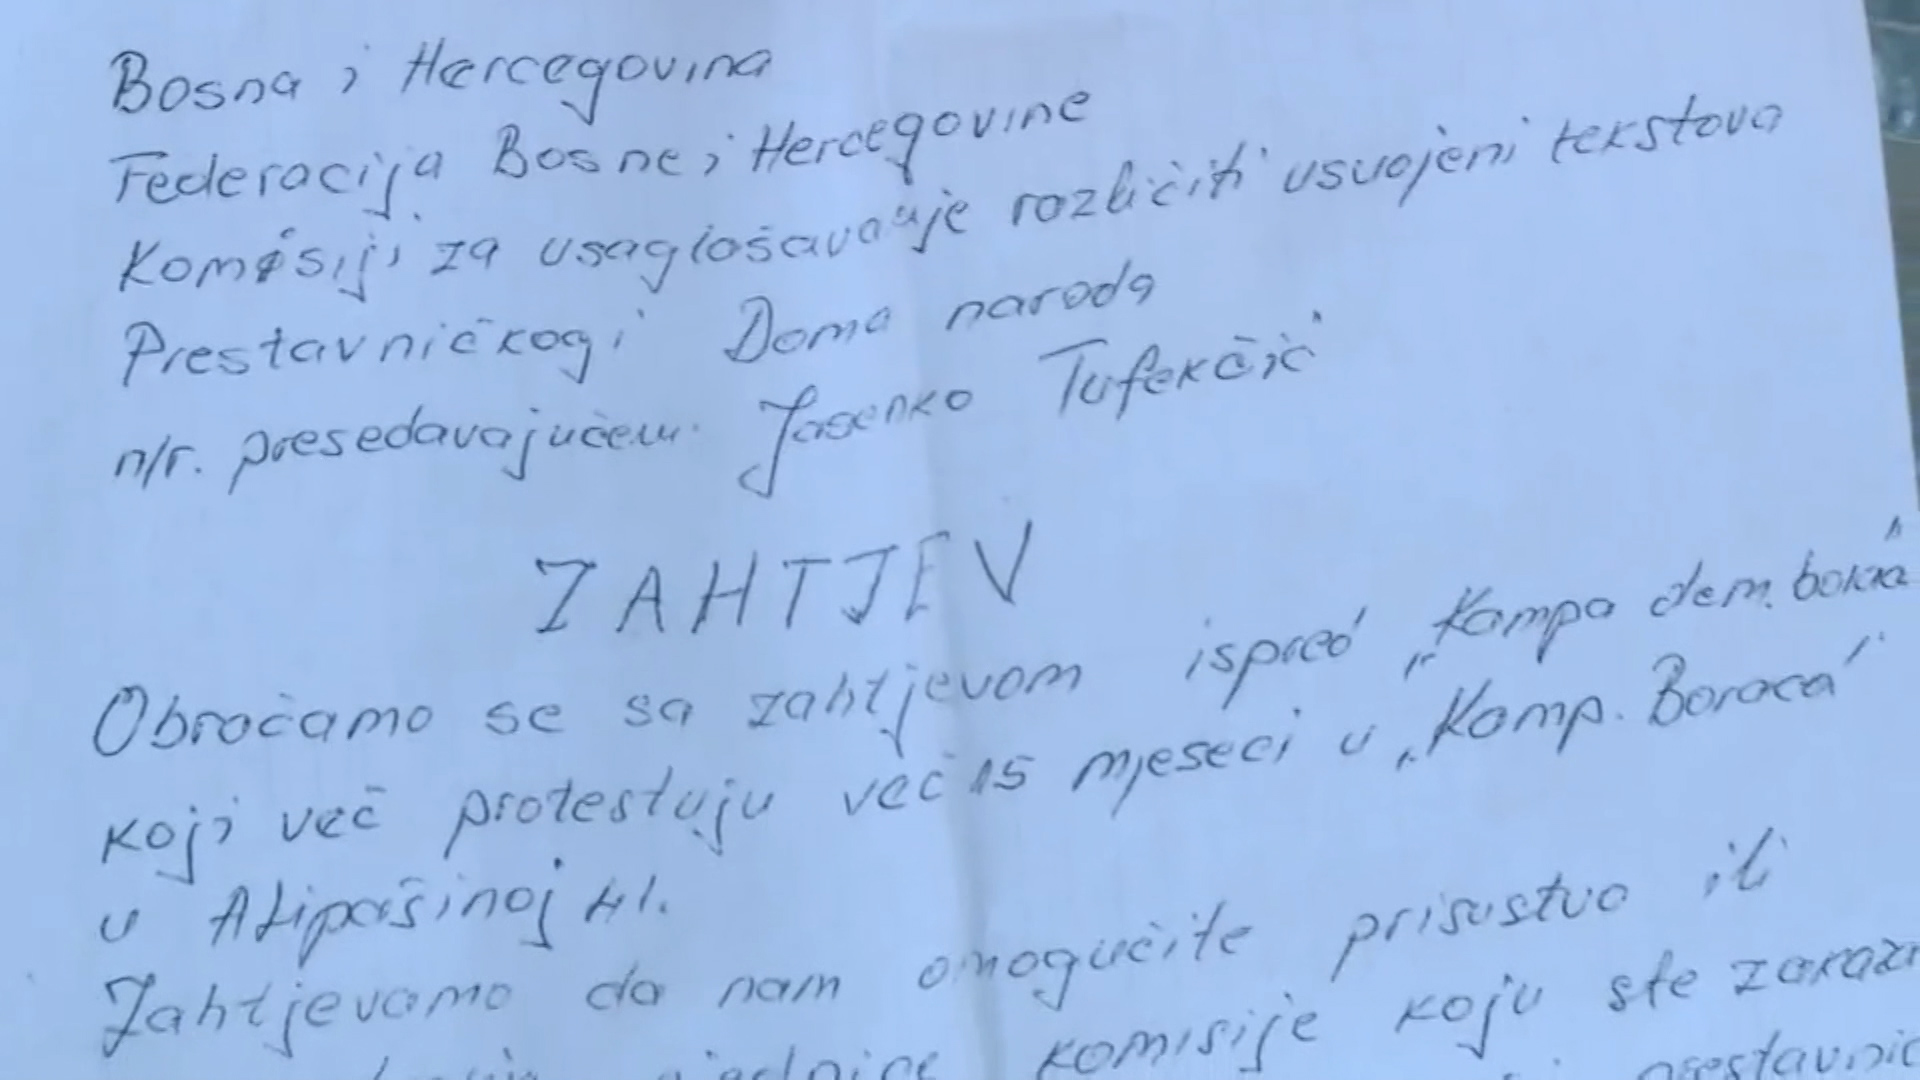 Bosna i Hercegovina
Federacija Bosne i Hercegovine
Komisiji za usaglošavanje različiti usvojeni tekstova
Prestavničkog i Doma naroda
n/r. presedavajućem Jasenko Tufekčić
ZAHTJEV
Obraćamo se sa zahtjevom ispred "Kampa dem. boraca"
koji več protestuju več 15 mjeseci u "Kamp. Boraca"
u Alipašinoj 41.
Zahtjevamo da nam omogućite prisustvo ili
sjednice komisije koju ste zakaza